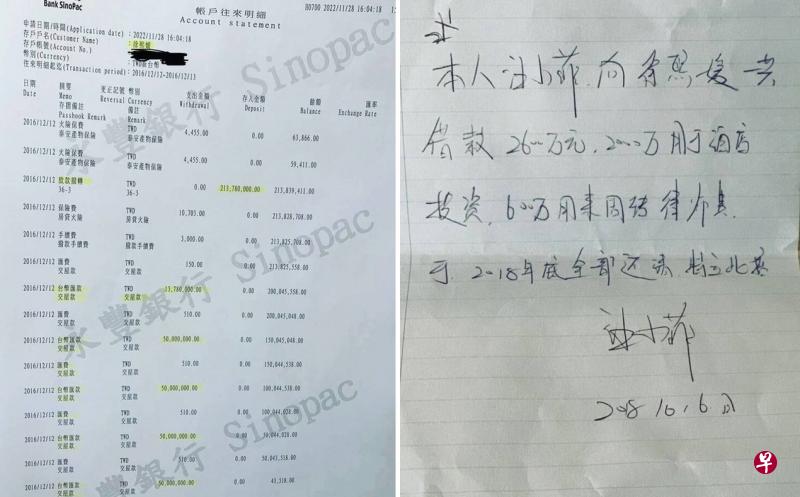 Bank SinoPac
帳戶往來明細
Account statement
H0700 2022/11/28 16:04:18
申請日期/時間(Application date) : 2022/11/28 16:04:18
存戶戶名(Customer Name) : 徐熙媛
存戶帳號(Account No.) :
幣別(Currency) : TWD新台幣
往來明細起迄(Transaction period) : 2016/12/12-2016/12/13
日期 摘要 更正記號 幣別 支出金額 存入金額 餘額 匯率
Date Memo Reversal Currency Withdrawal Deposit Balance Exchange Rate
存摺備註 備註
Passbook Remark Remark
2016/12/12 火險保費 TWD 4,455.00 0.00 63,866.00
泰安產物保險 泰安產物保險
2016/12/12 火險保費 TWD 4,455.00 0.00 59,411.00
泰安產物保險 泰安產物保險
2016/12/12 放款撥轉 TWD 0.00 213,780,000.00 213,839,411.00
36-3 36-3
2016/12/12 保險費 TWD 10,703.00 0.00 213,828,708.00
房貸火險 房貸火險
2016/12/12 手續費 TWD 3,000.00 0.00 213,825,708.00
撥款手續費 撥款手續費
2016/12/12 匯費 TWD 150.00 0.00 213,825,558.00
交屋款 交屋款
2016/12/12 台幣匯款 TWD 13,780,000.00 0.00 200,045,558.00
交屋款 交屋款
2016/12/12 匯費 TWD 510.00 0.00 200,045,048.00
交屋款 交屋款
2016/12/12 台幣匯款 TWD 50,000,000.00 0.00 150,045,048.00
交屋款 交屋款
2016/12/12 匯費 TWD 510.00 0.00 150,044,538.00
交屋款 交屋款
2016/12/12 台幣匯款 TWD 50,000,000.00 0.00 100,044,538.00
交屋款 交屋款
2016/12/12 匯費 TWD 510.00 0.00 100,044,028.00
交屋款 交屋款
2016/12/12 台幣匯款 TWD 50,000,000.00 0.00 50,044,028.00
交屋款 交屋款
2016/12/12 匯費 TWD 510.00 0.00 50,043,518.00
交屋款 交屋款
2016/12/12 台幣匯款 TWD 50,000,000.00 0.00 43,518.00
交屋款 交屋款
永豐銀行 Sinopac
永豐銀行 Sinopac
永豐銀行 Sinopac
本人汪小菲,向徐熙媛共
借款2600万元,2000万用于酒店
投资,600万用来周转
于2018年底全部还清,特立此
汪小菲
2018.10.6日
早